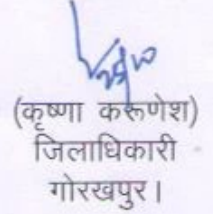 (कृष्णा करूणेश)
जिलाधिकारी
गोरखपुर।